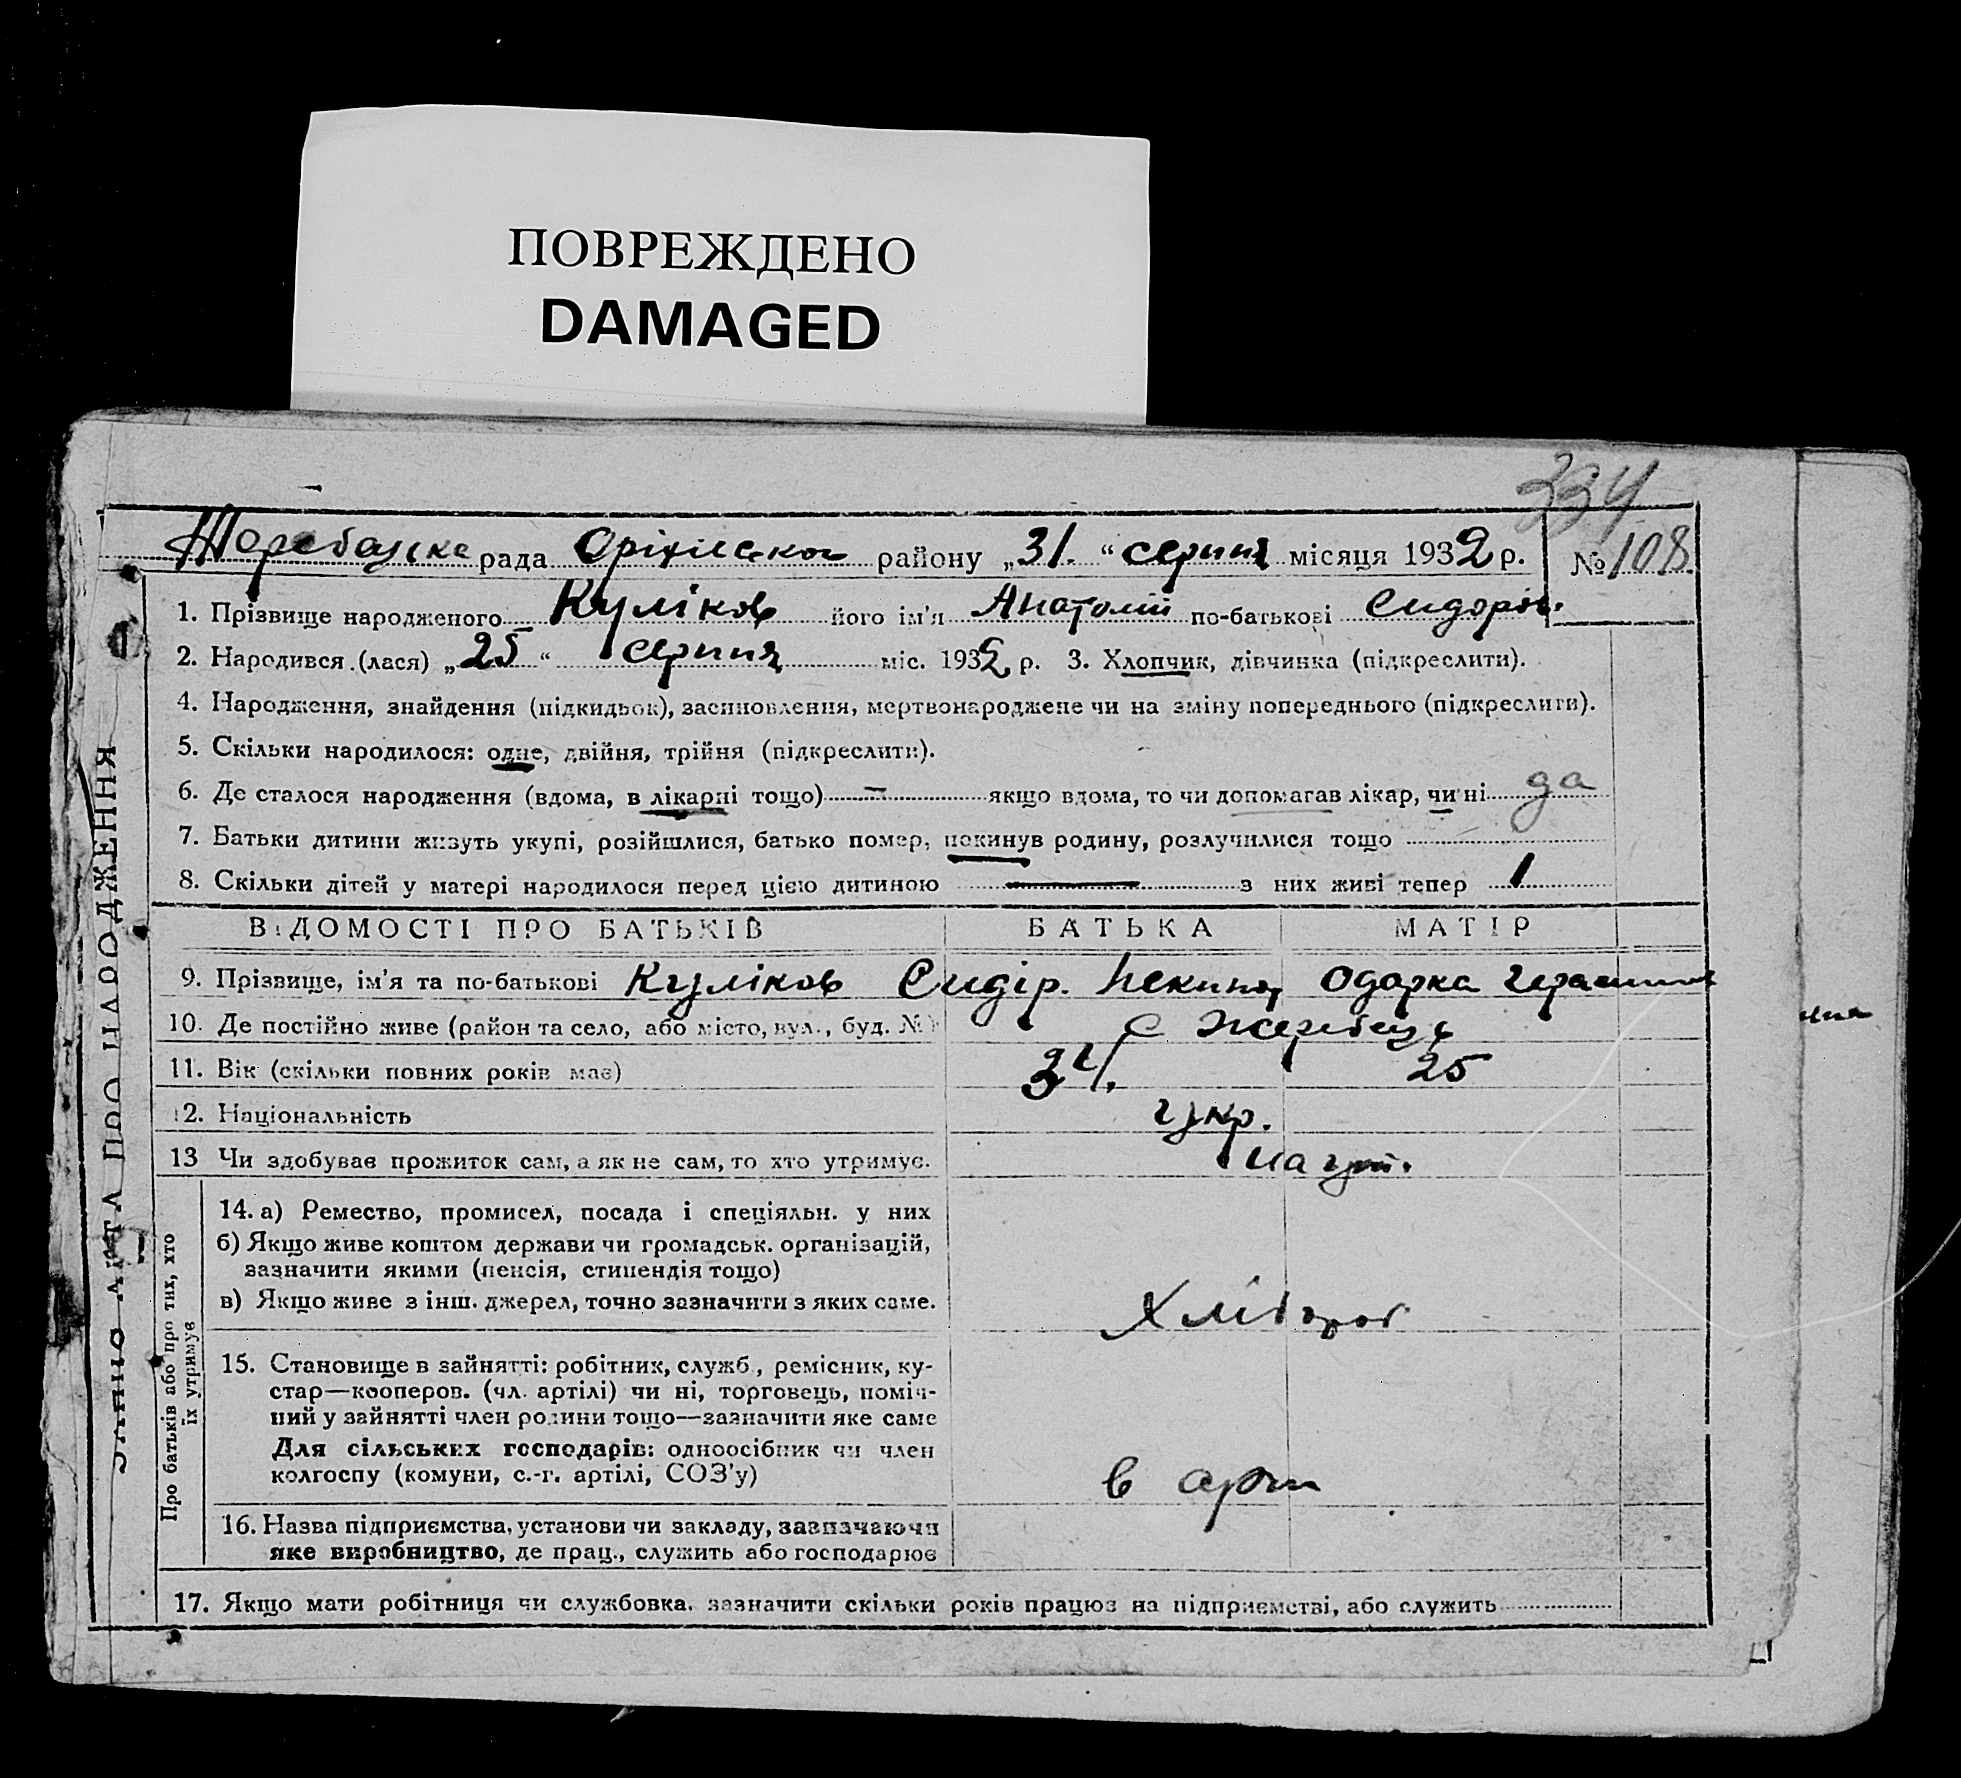 ПОВРЕЖДЕНО
DAMAGED
334
Жеребецька рада Оріхівськог району „31.“ серпня місяця 1932 р. № 108
1. Прізвище народженого Куліков його ім'я Анатолій по-батькові Сидоров.
2. Народився (лася) „25“ серпня міс. 1932 р. 3. Хлопчик, дівчинка (підкреслити).
4. Народження, знайдення (підкидьок), засиновлення, мертвонароджене чи на зміну попереднього (підкреслити).
5. Скільки народилося: одне, двійня, трійня (підкреслити).
6. Де сталося народження (вдома, в лікарні тощо) – якщо вдома, то чи допомагав лікар, чи ні да
7. Батьки дитини живуть укупі, розійшлися, батько помер, покинув родину, розлучилися тощо
8. Скільки дітей у матері народилося перед цією дитиною — з них живі тепер 1
ВІДОМОСТІ ПРО БАТЬКІВ БАТЬКА МАТІР
9. Прізвище, ім'я та по-батькові Куліков Сидір. Одарка
10. Де постійно живе (район та село, або місто, вул., буд. №) с Жеребець
11. Вік (скільки повних років має) 25
12. Національність укр.
13 Чи здобуває прожиток сам, а як не сам, то хто утримує.
14. а) Ремество, промисел, посада і спеціяльн. у них
б) Якщо живе коштом держави чи громадськ. організацій,
зазначити якими (пенсія, стипендія тощо)
в) Якщо живе з інш. джерел, точно зазначити з яких саме.
Хлібороб
15. Становище в зайнятті: робітник, служб., ремісник, ку-
стар—кооперов. (чл. артілі) чи ні, торговець, поміч-
ний у зайнятті член родини тощо—зазначити яке саме
Для сільських господарів: одноосібник чи член
колгоспу (комуни, с.-г. артілі, СОЗ'у) в арт
16. Назва підприємства, установи чи закладу, зазначаючи
яке виробництво, де прац., служить або господарює
17. Якщо мати робітниця чи службовка, зазначити скільки років працює на підприємстві, або служить
ЗАПИС АКТА ПРО НАРОДЖЕННЯ
Про батьків або про тих, хто
їх утримує